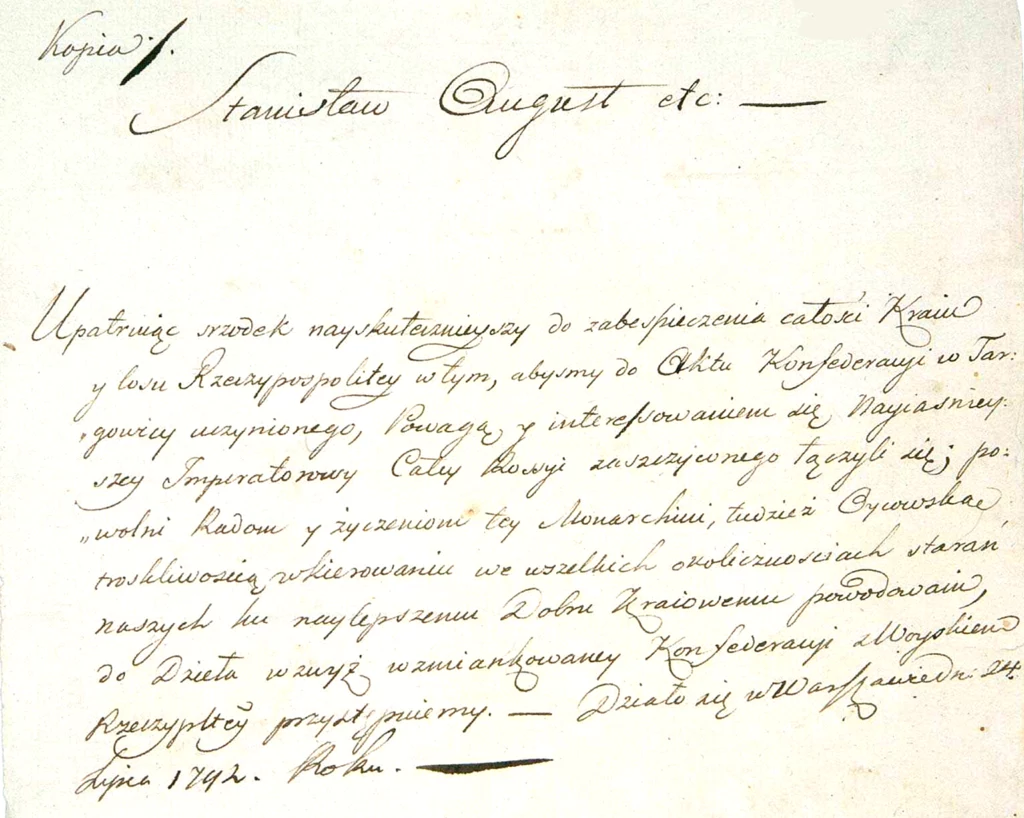 Kopia /.
Stanisław August etc: —
Upatruiąc srzodek nayskutecznieyszy do zabespieczenia całości Kraiu
y losu Rzeczypospolitey w tym, abysmy do Aktu Konfederacyi w Tar:
„gowicy uczynionego, Powagą y interessowaniem się Nayiasniey:
szey Imperatorowy Całey Rossyi zaszczyconego łączyli się; po:
„wolni Radom y życzeniom tey Monarchini, tudzież Oycowską
troskliwoscią w kierowaniu we wszelkich okolicznosciach starań
naszych ku naylepszemu Dobru Kraiowemu powodowani,
do Dzieła wzwyż wzmiankowaney Konfederacyi z Woyskiem
Rzeczypltey przystępuiemy. — Działo się w Warszawie dn: 24.
Lipca 1792. Roku. —